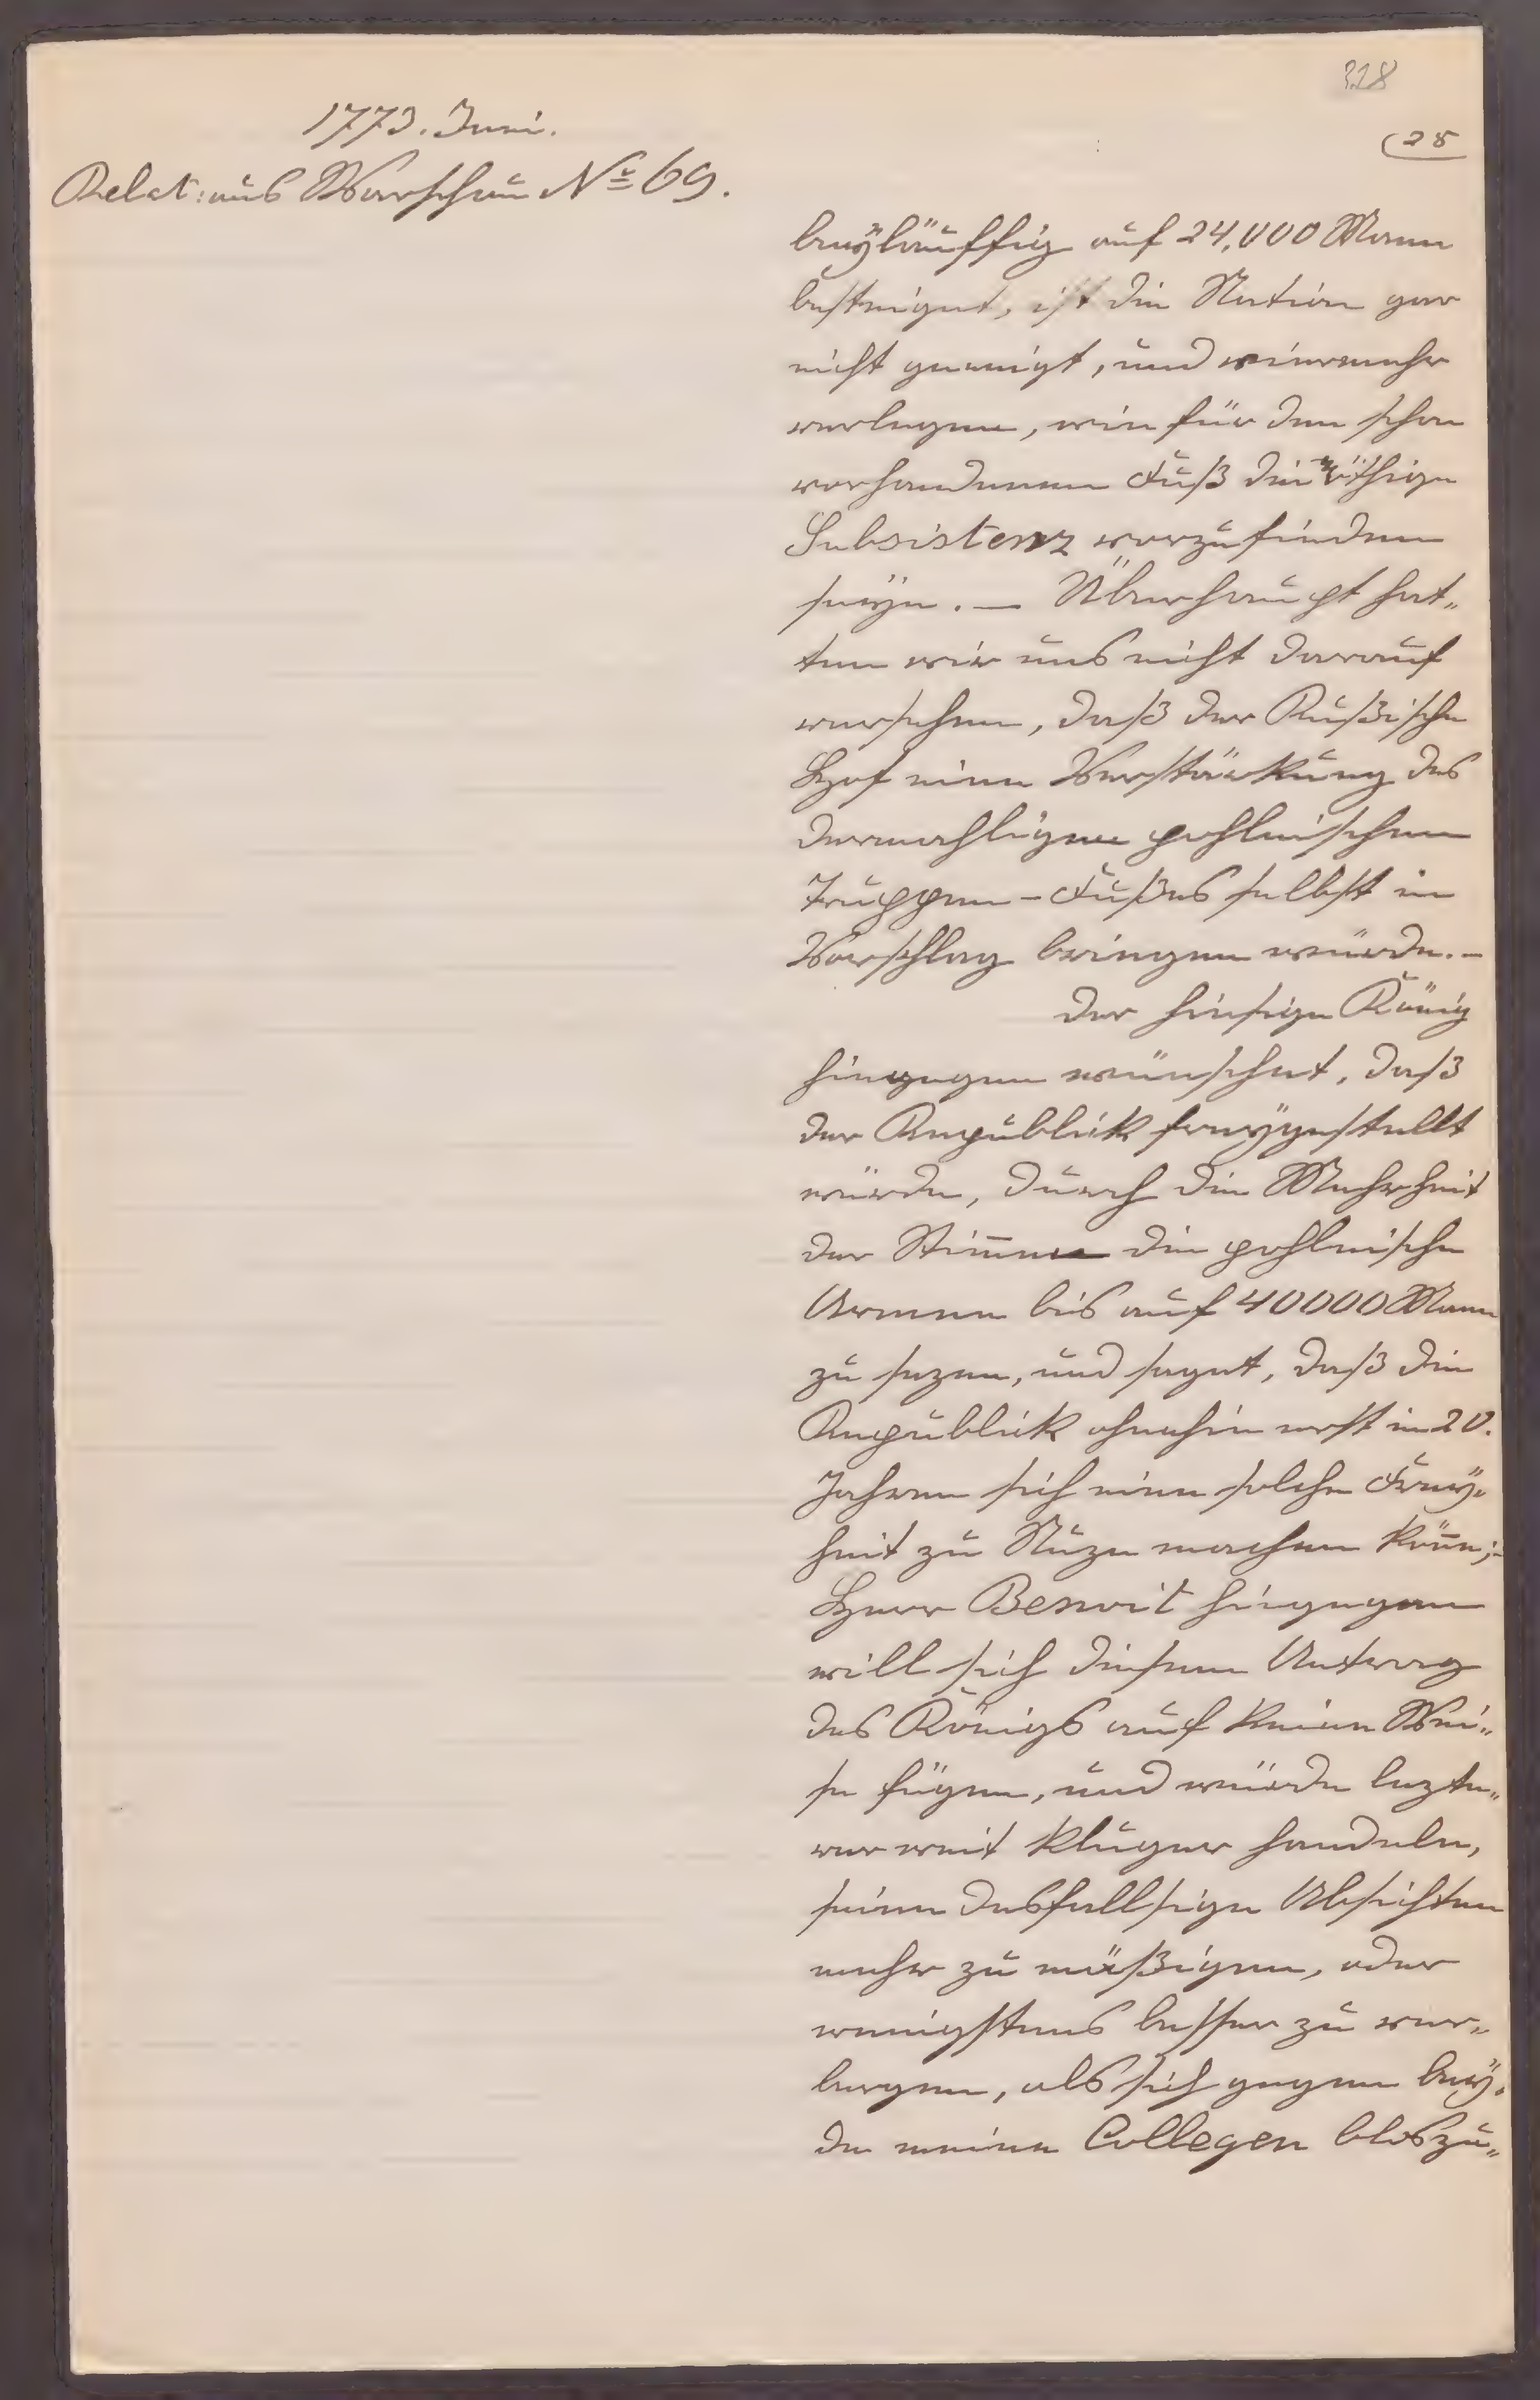 328
(28
1773. Juni.
Relat: aus Warschau No 69.
beyläuffig auf 24,000 Mann
besteiget, ist die Nation gar
nicht geneigt, und viermehr
verlegen, wie für den schon
vorhandenen Fuß die nöthige
Subsistenz vorzufinden
seye. — Überhaupt hat„
ten wir uns nicht darauf
versehen, daß der Rußische
Hof eine Verstärkung des
dermahligen pohlnischen
Truppen-Fußes selbst in
Vorschlag bringen würde. –
Der hiesige König
hingegen wünschet, daß
der Republick freygestellt
würde, durch die Mehrheit
der Stim̅en die pohlnische
Armee bis auf 40000 Mann
zu sezen, und saget, daß die
Republick ohnehin erst in 20.
Jahren sich eine solche Frey„
heit zu Nuze machen kön̅e;–
Herr Benoit hingegen
will sich diesem Antrag
des Königs auf keine Wei„
se fügen, und würde lezte„
rer weit kluger handeln,
seine desfallsige Absichten
mehr zu mäßigen, oder
wenigstens besser zu ver„
bergen, als sich gegen bey„
de meine Collegen bloszu„